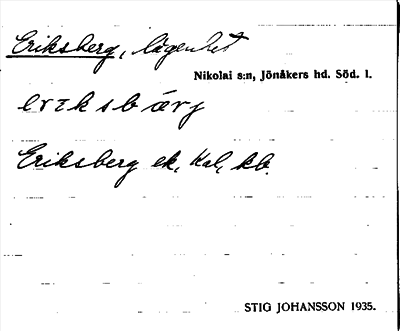 Eriksberg, lägenhet
Nikolai s:n, Jönåkers hd. Söd. l.
Eriksberg ek, Kal, kb.
STIG JOHANSSON 1935.